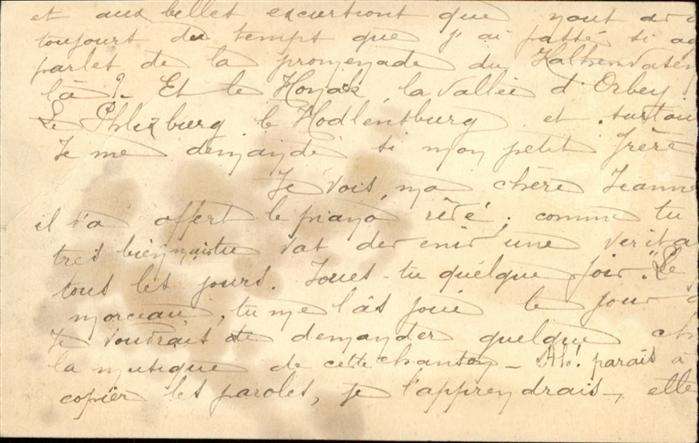 et aux belles excursions que nous av
toujours du temps que j'ai passé si a
parler de la promenade du Kalkenwasen
là? Et le Honak, la Vallée d'Orbey!
Le Phlixburg le Hodlensburg et surtou
Je me demande si mon petit frère
Je vois, ma chère Jeann
il t'a offert le piano rêvé; comme tu
très bien, tu vas devenir une vérita
tous les jours. Joues-tu quelque fois "Le
morceau, tu me l'as joué le jour
Je voudrais te demander quelque ch
la musique de cette chanson — Ah! parais à
copier les paroles, je l'apprendrais, elle